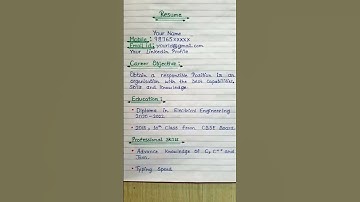 Resume
Your Name
Mobile : 98765xxxxx
Email id : yourid@gmail.com
Your Linkedin Profile
Career Objective :
Obtain a responsive Position in an
organisation with the best capabilities,
Skills and Knowledge.
Education :
• Diploma in Electrical Engineering
2020-2022.
• 2018, 10th Class From CBSE Board.
Professional Skills
• Advance Knowledge of C, C++ and
Java.
• Typing Speed